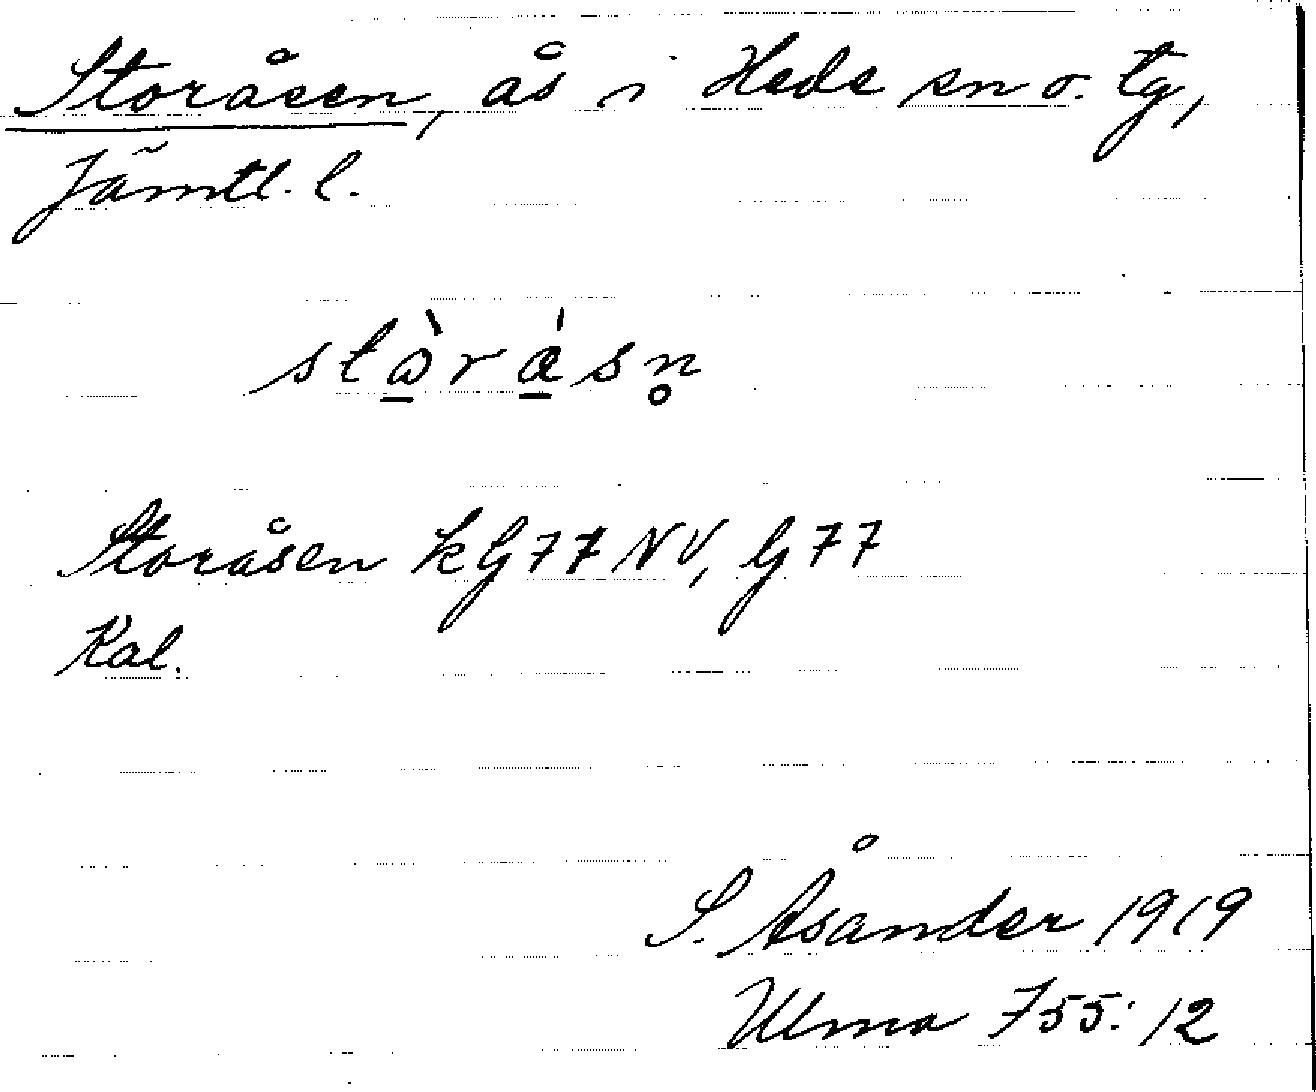 Storåsen, ås i Hede sn o. tg,
Jämtl. l.
stὼ̲rά̲sn̥
Storåsen k G77 NV, G77
Kal.
S. Åsander 1919
Ulma 755:12